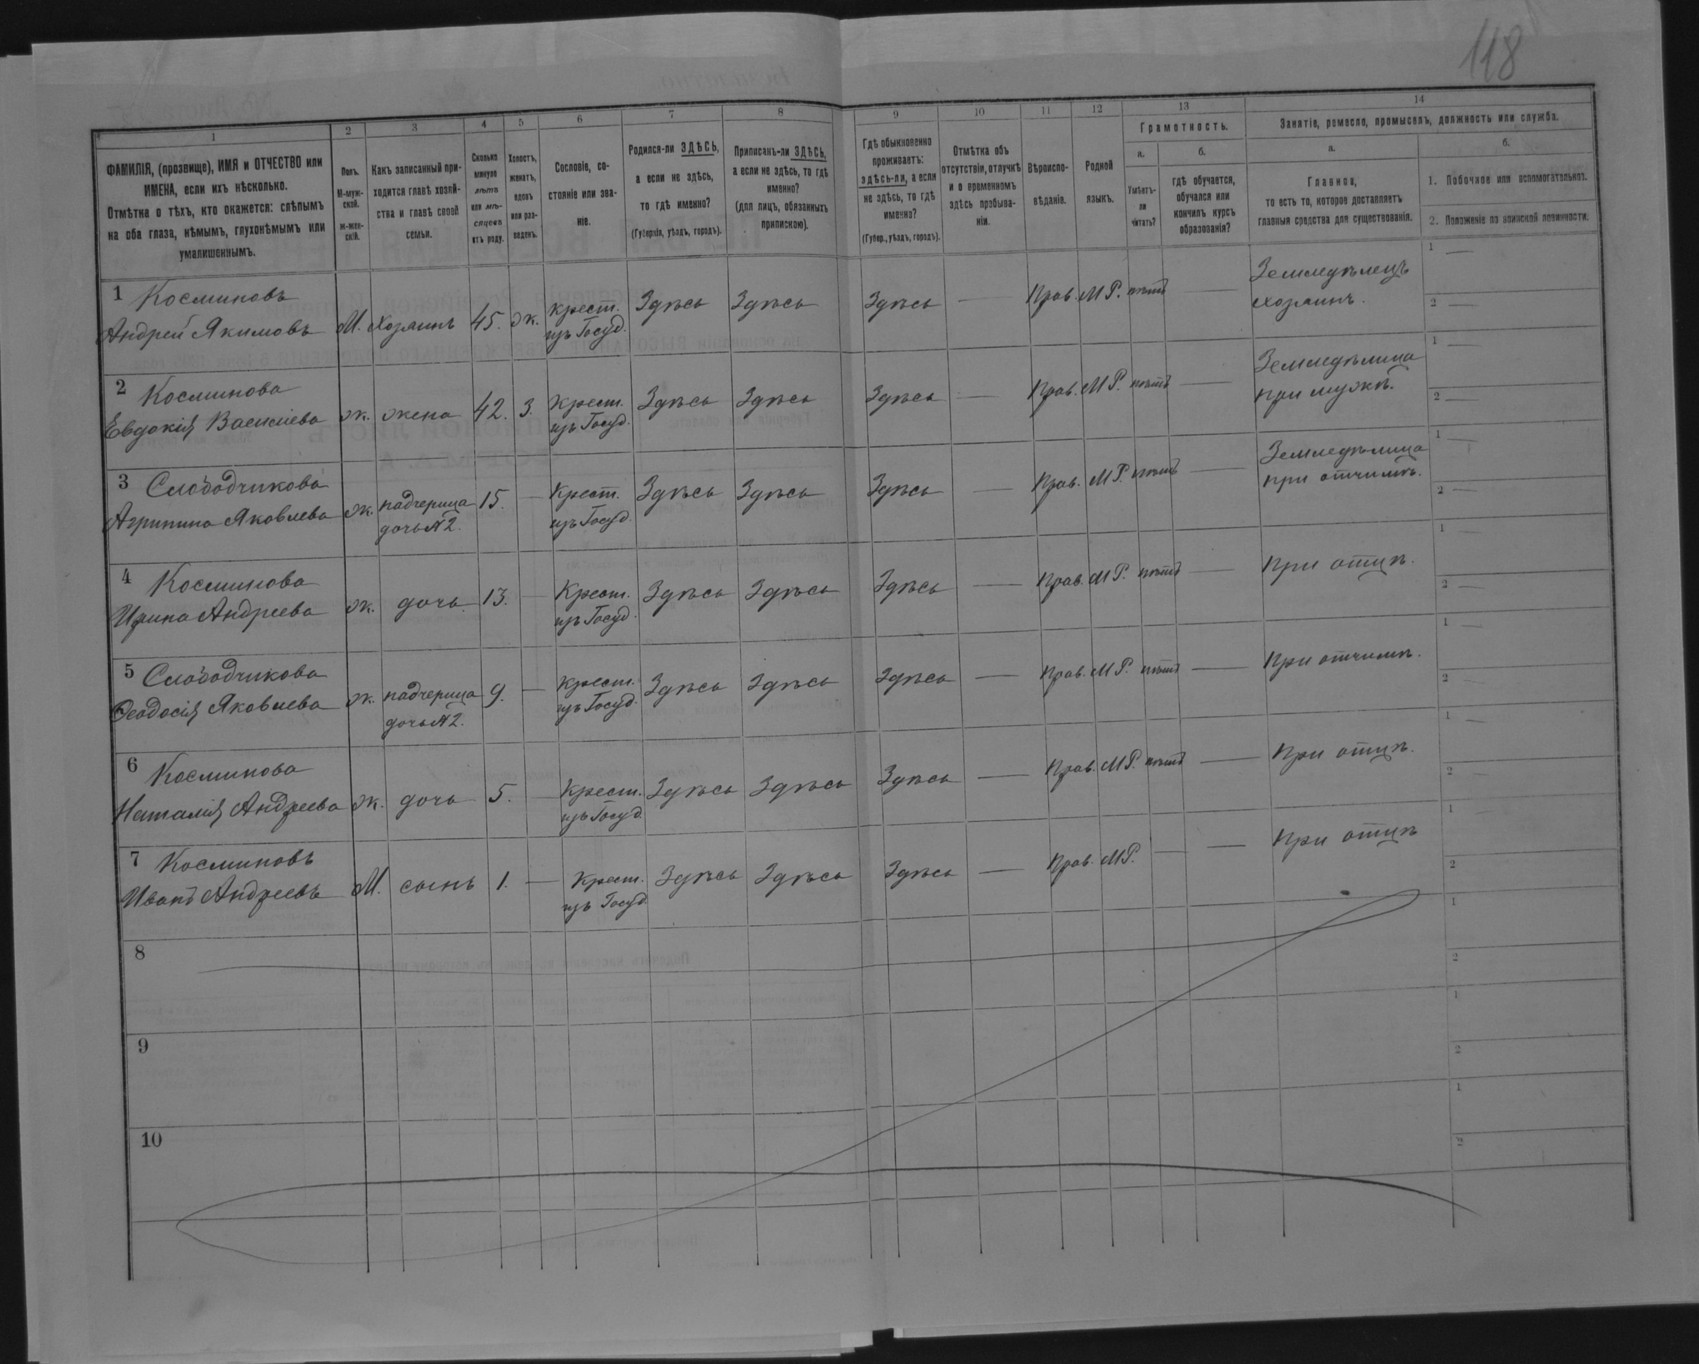 118
1
2
3
4
5
6
7
8
9
10
11
12
13
14
ФАМИЛІЯ, (прозвище), ИМЯ и ОТЧЕСТВО или
ИМЕНА, если ихъ нѣсколько.
Отмѣтка о тѣхъ, кто окажется: слѣпымъ
на оба глаза, нѣмымъ, глухонѣмымъ или
умалишеннымъ.
Полъ.
М-муж-
ской.
ж-жен-
скій.
Какъ записанный при-
ходится главѣ хозяй-
ства и главѣ своей
семьи.
Сколько
минуло
лѣтъ
или мѣ-
сяцевъ
отъ роду.
Холостъ,
женатъ,
вдовъ
или раз-
веденъ.
Сословіе, со-
стояніе или зва-
ніе.
Родился-ли ЗДѢСЬ,
а если не здѣсь,
то гдѣ именно?
(Губернія, уѣздъ, городъ).
Приписанъ-ли ЗДѢСЬ,
а если не здѣсь, то гдѣ
именно?
(для лицъ, обязанныхъ
припискою).
Гдѣ обыкновенно
проживаетъ:
здѣсь-ли, а если
не здѣсь, то гдѣ
именно?
(Губер., уѣздъ, городъ).
Отмѣтка объ
отсутствіи, отлучкѣ
и о временномъ
здѣсь пребыва-
ніи.
Вѣроиспо-
вѣданіе.
Родной
языкъ.
Грамотность.
а.
Умѣетъ-
ли
читать?
б.
гдѣ обучается,
обучался или
кончилъ курсъ
образованія?
Занятіе, ремесло, промыселъ, должность или служба.
а.
Главное,
то есть то, которое доставляетъ
главныя средства для существованія.
б.
1. Побочное или вспомогательное.
2. Положеніе по воинской повинности.
1 Косминовъ
Андрей Якимовъ М. Хозяинъ 45. ж. Крест.
изъ Госуд. Здѣсь Здѣсь Здѣсь — Прав. МР. нѣтъ — Земледѣлецъ
хозяинъ. 1 —
2 —
2 Косминова
Евдокія Васильева ж. жена 42. З. Крест.
изъ Госуд. Здѣсь Здѣсь Здѣсь — Прав. МР. нѣтъ — Земледѣлица
при мужѣ. 1 —
2 —
3 Слободчикова
Агрипина Яковлева ж. падчерица
дочь №2. 15. — Крест.
изъ Госуд. Здѣсь Здѣсь Здѣсь — Прав. МР. нѣтъ — Земледѣлица
при отчимѣ. 1 —
2 —
4 Косминова
Ирина Андреева ж. дочь 13. — Крест.
изъ Госуд. Здѣсь Здѣсь Здѣсь — Прав. МР. нѣтъ — При отцѣ. 1 —
2 —
5 Слободчикова
Ѳеодосія Яковлева ж. падчерица
дочь №2. 9. — Крест.
изъ Госуд. Здѣсь Здѣсь Здѣсь — Прав. МР. нѣтъ — При отчимѣ. 1 —
2 —
6 Косминова
Наталія Андреева ж. дочь 5. — Крест.
изъ Госуд. Здѣсь Здѣсь Здѣсь — Прав. МР. нѣтъ — При отцѣ. 1 —
2 —
7 Косминовъ
Иванъ Андреевъ М. сынъ 1. — Крест.
изъ Госуд. Здѣсь Здѣсь Здѣсь — Прав. МР. — — При отцѣ 1
2
8 1
2
9 1
2
10 1
2